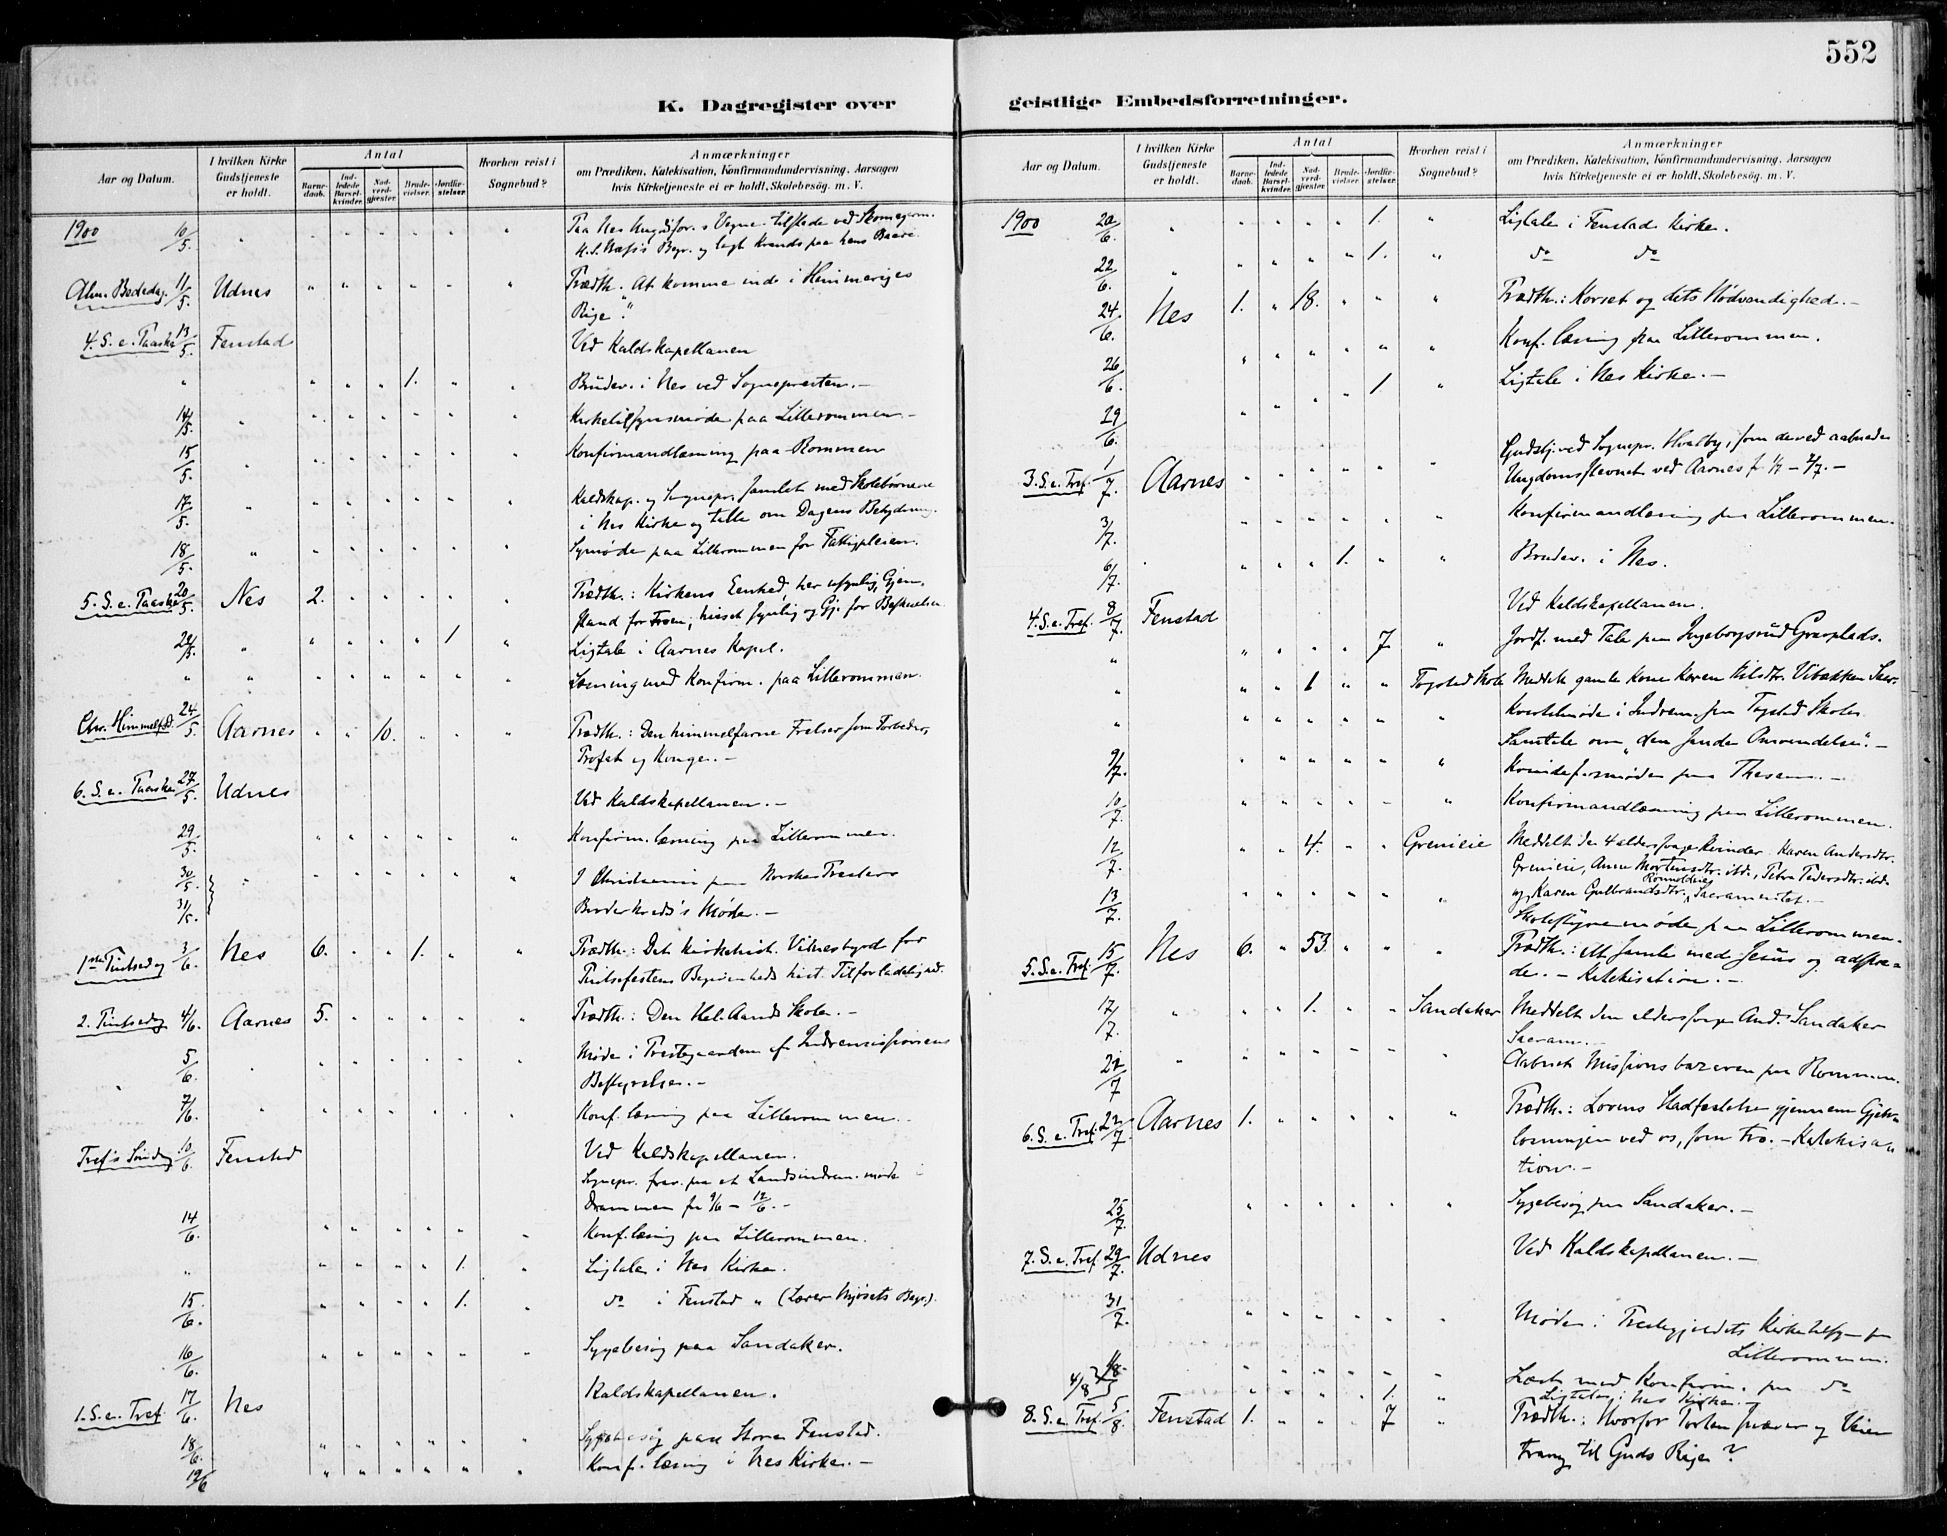 552
K. Dagregister over
Aar og Datum.
I hvilken Kirke Gudstjeneste er holdt.
Antal
Barnedaab.
Indledede Barselkvinder.
Nadverdgjæster.
Brudevielser.
Jordfæstelser.
Hvorhen reist i Sognebud?
Anmærkninger
om Prædiken, Katekisation, Konfirmandundervisning, Aarsagen
hvis Kirketjeneste ei er holdt, Skolebesøg. m. V.
1900 10/5. " " " " " " " Paa Nes Ungdsfor.s Vegne tilstede ved
Begr. og lagt Krands paa hans Baare.
Alm. Bededag. 11/5. Udnes " " " " " " Prædth. At komme ind i Himmeriges
Rige."
4. S. e. Paaske 13/5. Fenstad Ved Kaldskapellanen
" " " " 1. " " Brudev. i Nes ved Sognepresten.-
14/5. " " " " " " " Kirketilsynsmøde paa Lillerommen.-
15/5. " " " " " " " Konfirmandlæsning paa Rommen
17/5. " " " " " " " Kaldskap. og Sognepr. samlet med Skolebørnene
i Nes Kirke og talte om Dagens Betydning.
18/5. " " " " " " " Symøde paa Lillerommen for Fattigpleien.
5. S. e. Paaske 20/5. Nes 2. " " " " " Prædth.: Kirkens Eenhed, her usynlig, Gjen-
stand for Troen; hisset synlig og Gj. for Beskuelsen.
22/5. " " " " " 1 " Ligtale i Aarnes Kapel.
" " " " " " " " Læsning med Konfirm. paa Lillerommen.
Chr. Himmelf.d. 24/5. Aarnes " " 10. " " " Prædth.: Den himmelfarne Frelser som Forbeder,
Profet og Konge.-
6. S. e. Paaske 27/5. Udnes Ved Kaldskapellanen.-
29/5. " " " " " " Konfirm.læsning paa Lillerommen.
30/5. " " " " " " " I Christiania paa Norske Presters
31/5. Broderkreds's Møde.-
1ste Pintsedag 3/6. Nes 6. " " 1. " " Prædth.: Det kirkehist. Vidnesbyrd for
Pintsefestens Begivenheds hist. Tilforladelighed.
2. Pintsedag 4/6. Aarnes 5. " " " " " Prædth.: Den Hel. Aands Skole.-
5/6. " " " " " " " Møde i Prestegaarden af Indremissionens
Bestyrelse.-
7/6. " " " " " " " Konf.læsning paa Lillerommen.
Tref's Søndag 10/6. Fenstad Ved Kaldskapellanen.
Sognepr. frav. paa et Landsindrem. møde i
Drammen fr 9/6 - 12/6.-
14/6. " " " " " " Konf.læsning paa Lillerommen.
" " " " " 1. " Ligtale i Nes Kirke.
15/6. " " " " 1. " do i Fenstad " (Lærer Mjøsets Begr.).
16/6. " " " " " " Sygebesøg paa Sandaker.
1. S. e. Tref. 17/6. Nes Kaldskapellanen.
18/6. " " " " " " Sygebesøg paa Store Fenstad.
19/6 " " " " " " Konf.læsning i Nes Kirke.-
geistlige Embedsforretninger.
Aar og Datum.
I hvilken Kirke Gudstjeneste er holdt.
Antal
Barnedaab.
Indledede Barselkvinder.
Nadverdgjæster.
Brudevielser.
Jordfæstelser.
Hvorhen reist i Sognebud?
Anmærkninger
om Prædiken, Katekisation, Konfirmandundervisning, Aarsagen
hvis Kirketjeneste ei er holdt, Skolebesøg. m. V.
1900 20/6. " " " " " 1. " Ligtale i Fenstad Kirke.
22/6. " " " " " 1. " do do
24/6. Nes 1. " 18. " " " Prædth.: Korset og dets Nødvendighed.-
26/6. " " " " " " Konf.læsning paa Lillerommen.
29/6. " " " " 1 " Ligtale i Nes Kirke.-
3. S. e. Tref. 1/7. Aarnes " " " " " " Gudstj. ved Sognepr. Hvalby, som derved aabnede
Ungdomsstevnet ved Aarnes fr 1/7 - 2/7.-
3/7. " " " " " " Konfirmandlæsning paa Lillerommen.
6/7. " " " " 1. " " Brudev. i Nes.
4. S. e. Tref. 8/7. Fenstad Ved Kaldskapellanen.
" " " " " 7 " Jordf. med Tale paa Ingeborgsrud Gravplads.
" " " 1 " " Togstad Skole Meddelt gamle Kone Karen Nilsdtr. Vibakken Sacr.
" " " " " " " Kredsmøde i Indrem. paa Togstad Skole
Samtale om "den sande Omvendelse".-
9/7. " " " " " " Kvindeforsmøde paa Thesen.-
10/7. " " " " " " Konfirmandlæsning paa Lillerommen.
12/7. " " 4. " " Grenieie Meddelt de 4 aldersvage Kvinder Karen Andersdtr.
Grenieie, Anne Mortensdtr. ibd., Petra Pedersdtr. ibd.
og Karen Gulbrandsdtr. Sacramentet.-
13/7. " " " " " " Skolestyremøde paa Lillerommen.
5. S. e. Tref. 15/7. Nes 6. " 53 " " " Prædth.: At samle med Jesus og adspre-
de.- Katekisation.-
17/7. " " " 1. " " Sandaker Meddelt den aldersvage And. Sandaker
Sacram.-
21/7 " " " " " " " Aabnet Missionsbazaren paa Rommen.
6. S. e. Tref. 22/7. Aarnes 1. " " " " " Prædth.: Lovens Stadfæstelse gjennem Gjen-
løsningen ved os, som tro.- Katekisa-
tion.-
25/7. " " " " " " Sygebesøg paa Sandaker.-
7. S. e. Tref. 29/7. Udnes Ved Kaldskapellanen.-
31/7. " " " " " " Møde i Prestegjeldets Kirketilsyn paa
Lillerommen.
" " " " " " Læst med Konfirm. paa do
4/8 " " " " 1. " Ligtale i Nes Kirke.-
8. S. e. Tref. 5/8. Fenstad 1. " " " 7 " Prædth.: Hvorfor Porten snæver og Veien
trang til Guds Rige?